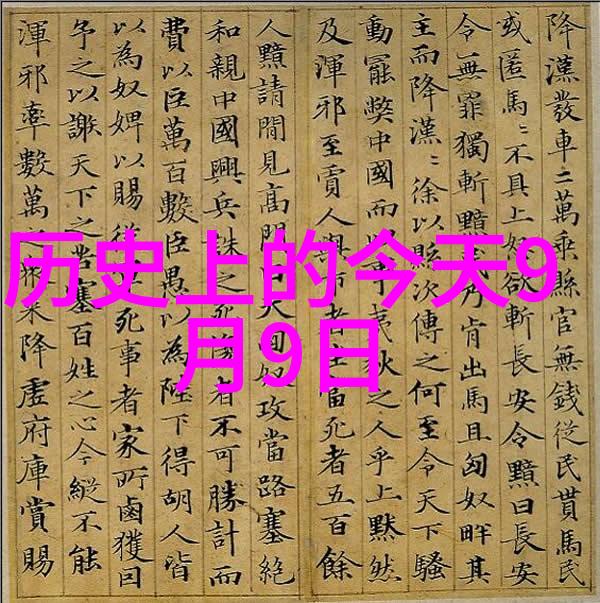 降漢發車二萬乘縣官無錢從民貰馬民
或匿馬〻不具上怒欲斬長安令黯曰長安
令無罪獨斬黯民乃肯出馬且匈奴畔其
主而降漢〻徐以縣次傳之何至令天下騷
動罷獘中國而以事夷狄之人乎上默然
及渾邪至賈人與市者坐當死者五百餘
人黯請間見高門曰夫匈奴攻當路塞絕
和親中國興兵誅之死傷者不可勝計而
費以巨萬百數臣愚以為陛下得胡人皆
以為奴婢以賜從死事者家所鹵獲因
予之以謝天下之苦塞百姓之心今縱不能
渾邪率數萬之眾來降虛府庫賞賜
历史上的今天9
月9日